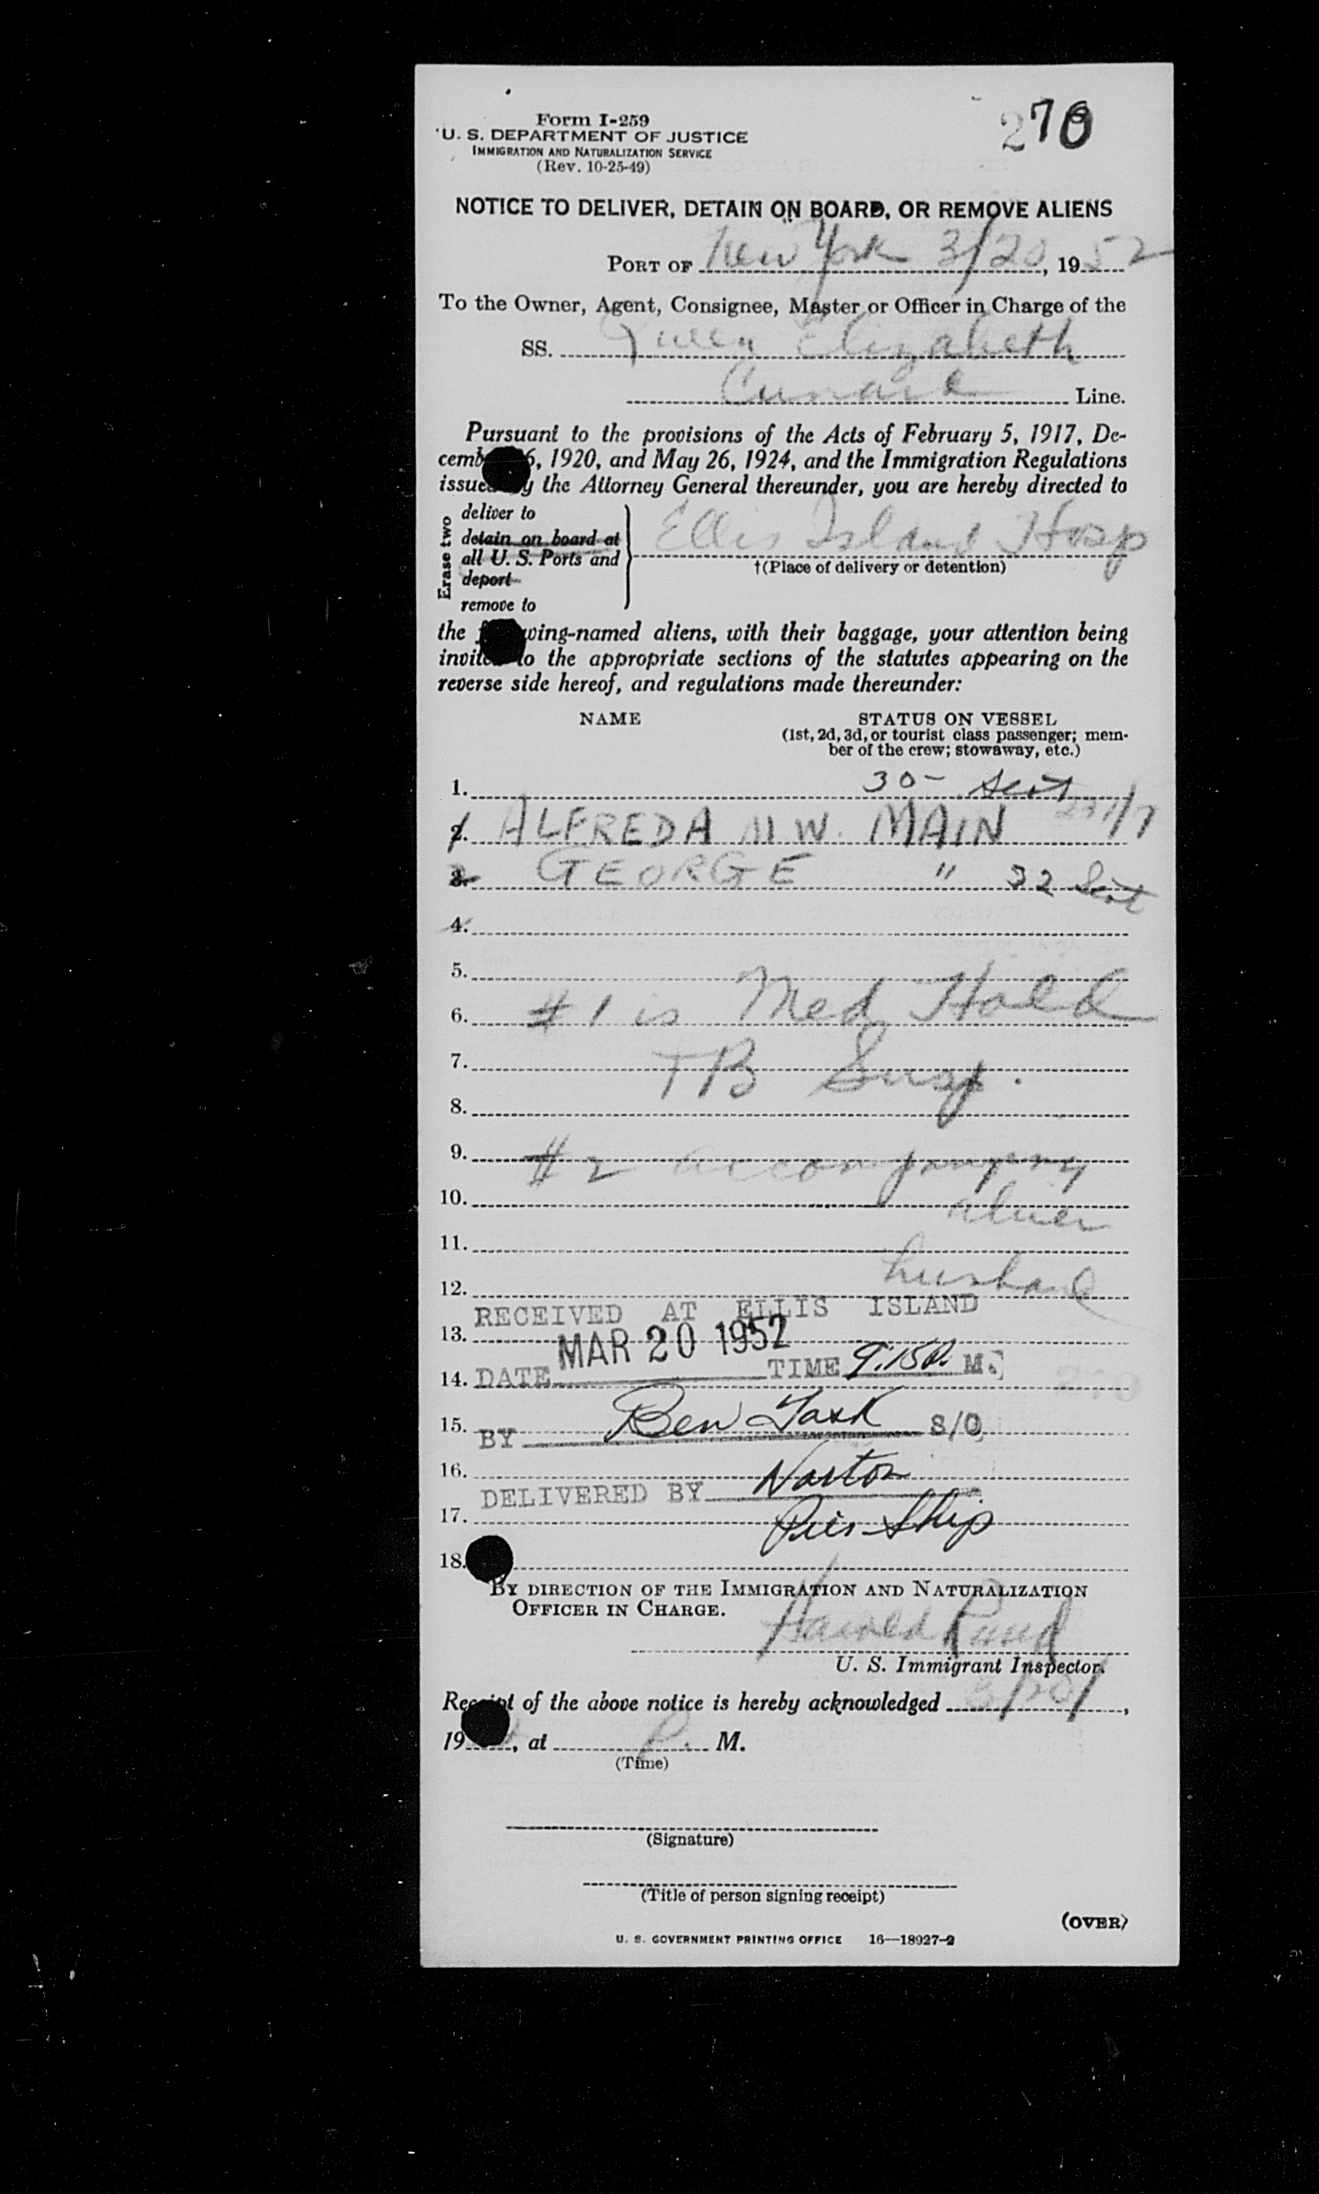 Form I-259
U. S. DEPARTMENT OF JUSTICE
IMMIGRATION AND NATURALIZATION SERVICE
(Rev. 10-25-49)
270
NOTICE TO DELIVER, DETAIN ON BOARD, OR REMOVE ALIENS
PORT OF New York 3/20, 1952
To the Owner, Agent, Consignee, Master or Officer in Charge of the
SS. Queen Elizabeth
Cunard Line.
Pursuant to the provisions of the Acts of February 5, 1917, De-
cemb 6, 1920, and May 26, 1924, and the Immigration Regulations
issued by the Attorney General thereunder, you are hereby directed to
Erase two
deliver to
detain on board at
all U. S. Ports and
deport
remove to
Ellis Island Hosp
†(Place of delivery or detention)
the wing-named aliens, with their baggage, your attention being
invited to the appropriate sections of the statutes appearing on the
reverse side hereof, and regulations made thereunder:
NAME STATUS ON VESSEL
(1st, 2d, 3d, or tourist class passenger; mem-
ber of the crew; stowaway, etc.)
1. 30- Scot
2. ALFREDA M W. MAIN
3. GEORGE " 32 Scot
4.
5.
6. #1 is Med Hold
7. TB Susp.
8.
9. #2 accompanying
10. alien
11.
12. husband
RECEIVED AT ELLIS ISLAND
13. MAR 20 1952
14. DATE TIME 9:15 P. M.
15. BY Ben S/O
16. Norton
DELIVERED BY
17. Pier-Ship
18.
BY DIRECTION OF THE IMMIGRATION AND NATURALIZATION
OFFICER IN CHARGE.
Harold
U. S. Immigrant Inspector.
Receipt of the above notice is hereby acknowledged 3/20/,
19, at P. M.
(Time)
(Signature)
(Title of person signing receipt)
(OVER)
U. S. GOVERNMENT PRINTING OFFICE 16—18927-2